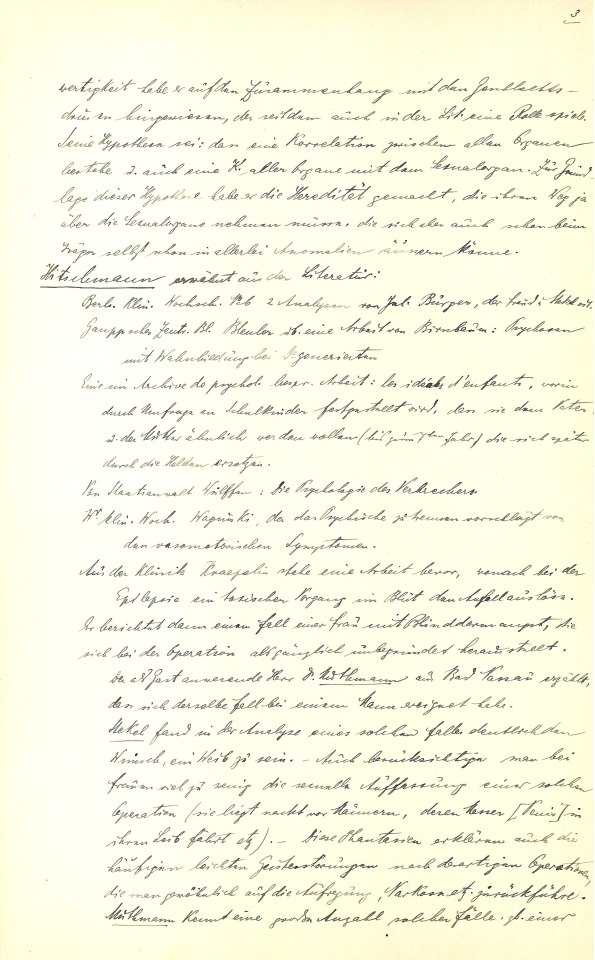 3
wertigkeit habe er auf den Zusammenhang mit den Genitalto-
drüsen hingewiesen, der seitdem auch in der Lit. eine Rolle spiele.
Seine Hypothese sei: dass eine Korrelation zwischen allen Organen
bestehe u. auch eine K. aller Organe mit dem Sexualorgan. Zur Grund-
lage dieser Hypothese habe er die Heredität gemacht, die ihren Weg ja
über die Sexualorgane nehmen müsse, die sich aber auch schon beim
Träger selbst schon in allerlei Anomalien äussern könne.
Hitschmann erwähnt aus der Literatur:
Berl. Klin. Wochsch. 2 Analysen von Jul. Bürger, der Freud u. Stekel
Gauppsches Zentr. Bl. Bleuler üb. eine Arbeit von Birnbaum: Psychosen
mit Wahnbildung bei Degenerierten
Eine im Archive de psychol. bespr. Arbeit: les idéals d'enfants, worin
durch Umfrage an Schulkinder festgestellt wird, dass sie dem Vater
u. der Mutter ähnlich werden wollen (bis zum 7ten Jahr) die sich später
durch die Helden ersetzen.
Von Staatsanwalt Wulffen: Die Psychologie des Verbrechers
Wr klin. Woch. der das Psychische zu trennen vorschlägt von
den vasomotorischen Symptomen.
Aus der Klinik Kraepelin stehe eine Arbeit bevor, wonach bei der
Epilepsie ein toxischer Vorgang im Blut den Anfall auslöse.
Er berichtet dann einen Fall einer Frau mit Blinddarmangst, die
sich bei der Operation als gänzlich unbegründet herausstellt.
Der als Gast anwesende Herr Dr. Muthmann aus Bad Nassau erzählt,
dass sich derselbe Fall bei einem Mann ereignet habe.
Stekel fand in der Analyse eines solchen Falles deutlich den
Wunsch, ein Weib zu sein. - Auch berücksichtige man bei
Frauen viel zu wenig die sexuelle Auffassung einer solchen
Operation (sie liegt nackt vor Männern, deren Messer [Penis] in
ihren Leib fährt etz). - Diese Phantasien erklären auch die
häufigen leichten Geistesstörungen nach derartigen Operationen,
die man gewöhnlich auf die Aufregung, Narkose etz. zurückführe.
Muthmann kennt eine grosse Anzahl solcher Fälle. einer